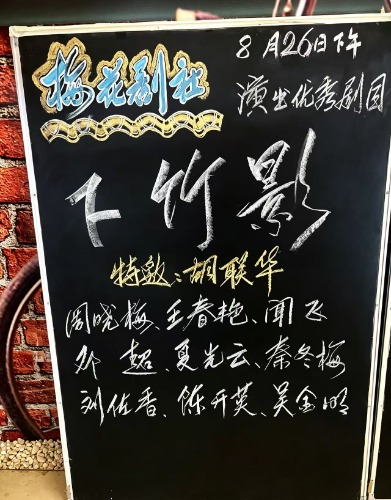 梅花剧社
8月26日下午
演出优秀剧目
下竹影
特邀：胡联华
周晓梅、王春艳、闻飞
邓超、夏光云、秦冬梅
刘佐香、陈开英、吴金明